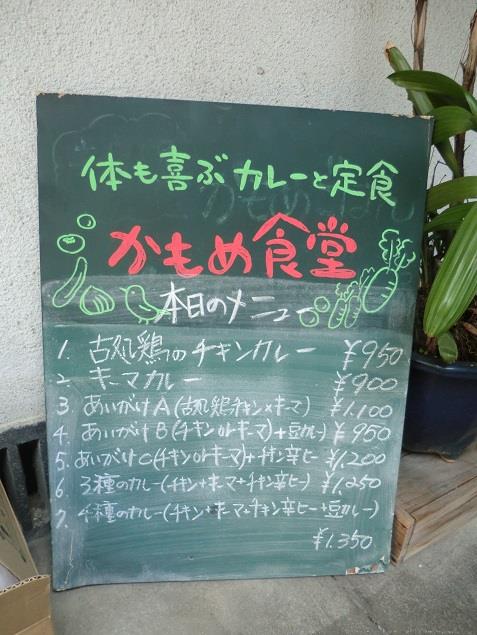 体も喜ぶカレーと定食
かもめ食堂
本日のメニュー
1. 古処鶏のチキンカレー ¥950
2. キーマカレー ¥900
3. あいがけA(古処鶏チキン×キーマ) ¥1.100
4. あいがけB(チキンorキーマ)+豆カレー) ¥950
5. あいがけC(チキンorキーマ)+チキン辛ビー ¥1,200
6. 3種のカレー(チキン+キーマ+チキン辛ビー) ¥1,250
7. 4種のカレー(チキン+キーマ+チキン辛ビー+豆カレー)
¥1.350